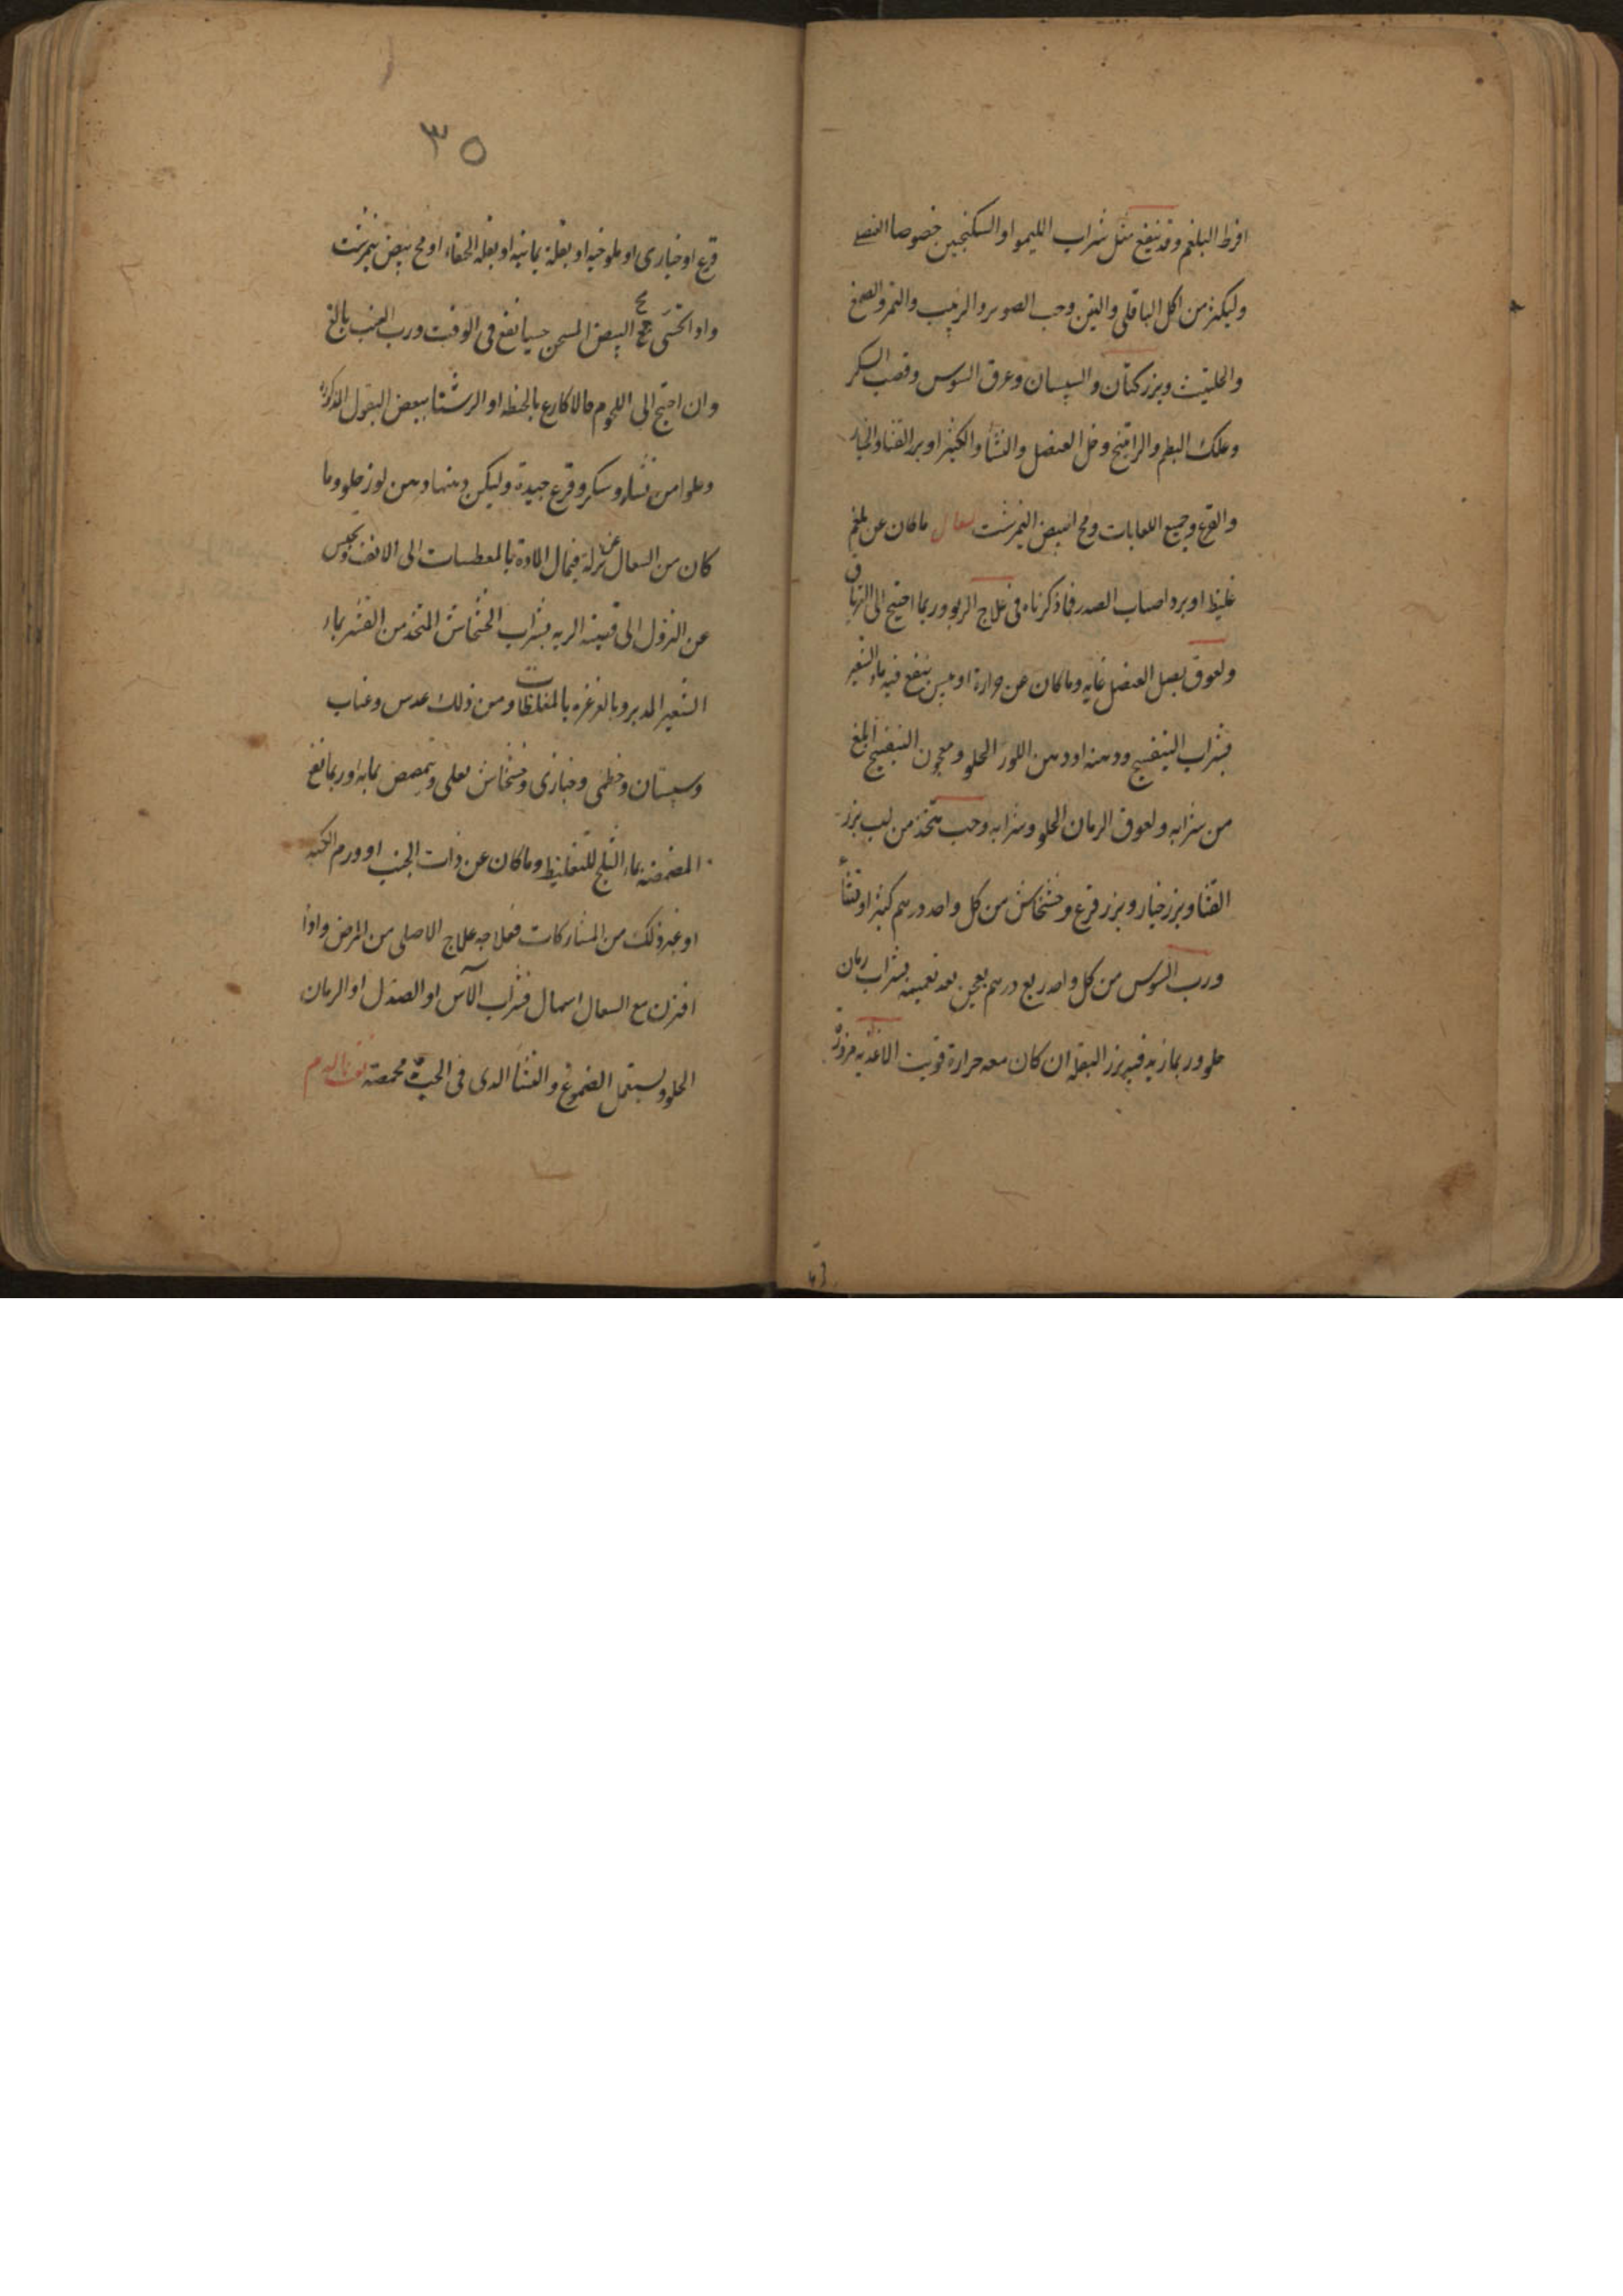 افرط البلغم وقد ينفع مثل شراب الليمو او السكنجبين خصوصا العنصلى
وليكثر من اكل الباقلى والتين وحب الصنوبر والزبيب والتمر والصمغ
والحلتيت وبزر كتان والسبستان وعرق السوس وقصب السكر
وعلك البطم والراتينج وخل العنصل والنشا والكثيرا وبزر القثا والخيار
والقرع وجميع اللعابات ومح البيض النيمرشت سعال ماكان عن بلغم
غليظ او برد اصاب الصدر فما ذكرناه فى علاج الربو وربما احتيج الى الترياق
ولعوق بصل العنصل غايه وماكان عن حرارة او يبس ينفع فيه ماء الشعير
بشراب البنفسج ودهنه او دهن اللوز الحلو ومعجون البنفسج ابلغ
من شرابه ولعوق الرمان الحلو وشرابه وحب يتخذ من لب بزر
القثا وبزر خيار وبزر قرع وخشخاش من كل واحد درهم كثيرا ونشاء
ورب السوس من كل واحد ربع درهم يعجن بعد تنعيمه بشراب رمان
حلو وربما زيد فيه بزر البقلة ان كان معه حرارة قويت الاغذيه مزورة
٣٥
قرع او خبازى او ملوخيه او بقلة يمانيه او بقله الحمقاء او مح بيض نيمرشت
واذا تحسى مح البيض المسخن حسيا نفع فى الوقت ورب العنب بالغ
وان احتيج الى اللحوم فالاكارع بالحنطه او الرشتا ببعض البقول المذكورة
وحلوا من نشاء وسكر وقرع جيدة وليكن دهنها دهن لوز حلو وما
كان من السعال عن نزلة فيمال المادة بالمعطسات الى الانف ويحبس
عن النزول الى قصبه الريه بشراب الخشخاش المتخذ من القشر بماء
الشعير المدبر وبالغرغره بالمغلظات ومن ذلك عدس وعناب
وسبستان وخطمى وخبازى وخشخاش يغلى ويتمضمض بمايه وربما نفع
المضمضة بماء الثلج للتغليظ وماكان عن ذات الجنب او ورم الكبد
او غير ذلك من المشاركات فعلاجه علاج الاصلى من المرض واذا
اقترن مع السعال اسهال فشراب الآس او الصندل او الرمان
الحلو ويستعمل الصموغ والنشا الذى فى الحب محمصة نفث الدم